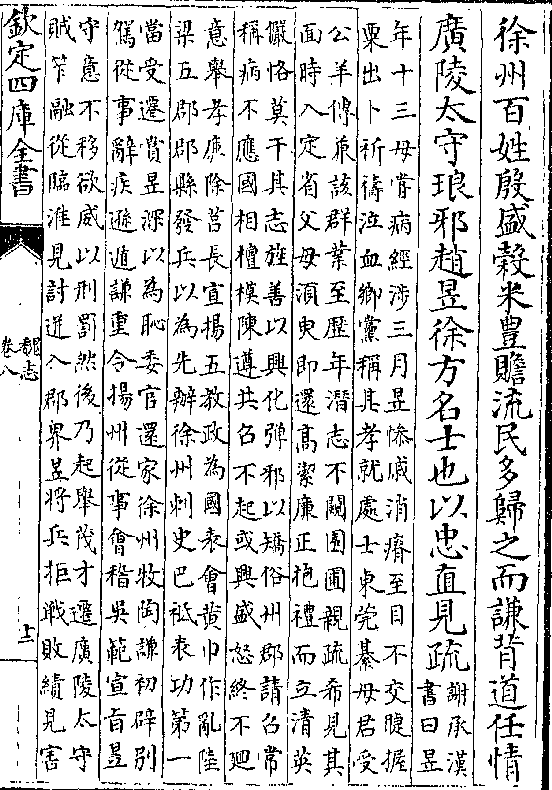 徐州百姓殷盛糓米豊贍流民多歸之而謙背道任情
廣陵太守琅邪趙昱徐方名士也以忠直見疏
謝承漢
書曰昱
年十三母嘗病經涉三月昱慘戚消瘠至目不交睫握
粟出卜祈禱泣血鄉黨稱其孝就處士東莞綦母君受
公羊傳兼該群業至歴年潛志不闚園圃親疏希見其
面時入定省父母須臾即還高潔廉正抱禮而立清英
儼恪莫干其志旌善以興化殫邪以矯俗州郡請召常
稱病不應國相檀模陳遵共召不起或興盛怒終不廻
意舉孝廉除莒長宣揚五教政為國表會黄巾作亂陸
梁五郡郡縣發兵以為先辦徐州刺史巴祗表功第一
當受遷賞昱深以為恥委官還家徐州牧陶謙初辟别
駕從事辭疾遜遁謙重令揚州從事會稽吳範宣旨昱
守意不移欲威以刑罰然後乃起舉茂才遷廣陵太守
賊笮融從臨淮見討迸入郡界昱將兵拒戰敗績見害
欽定四庫全書
魏志
卷八
十二